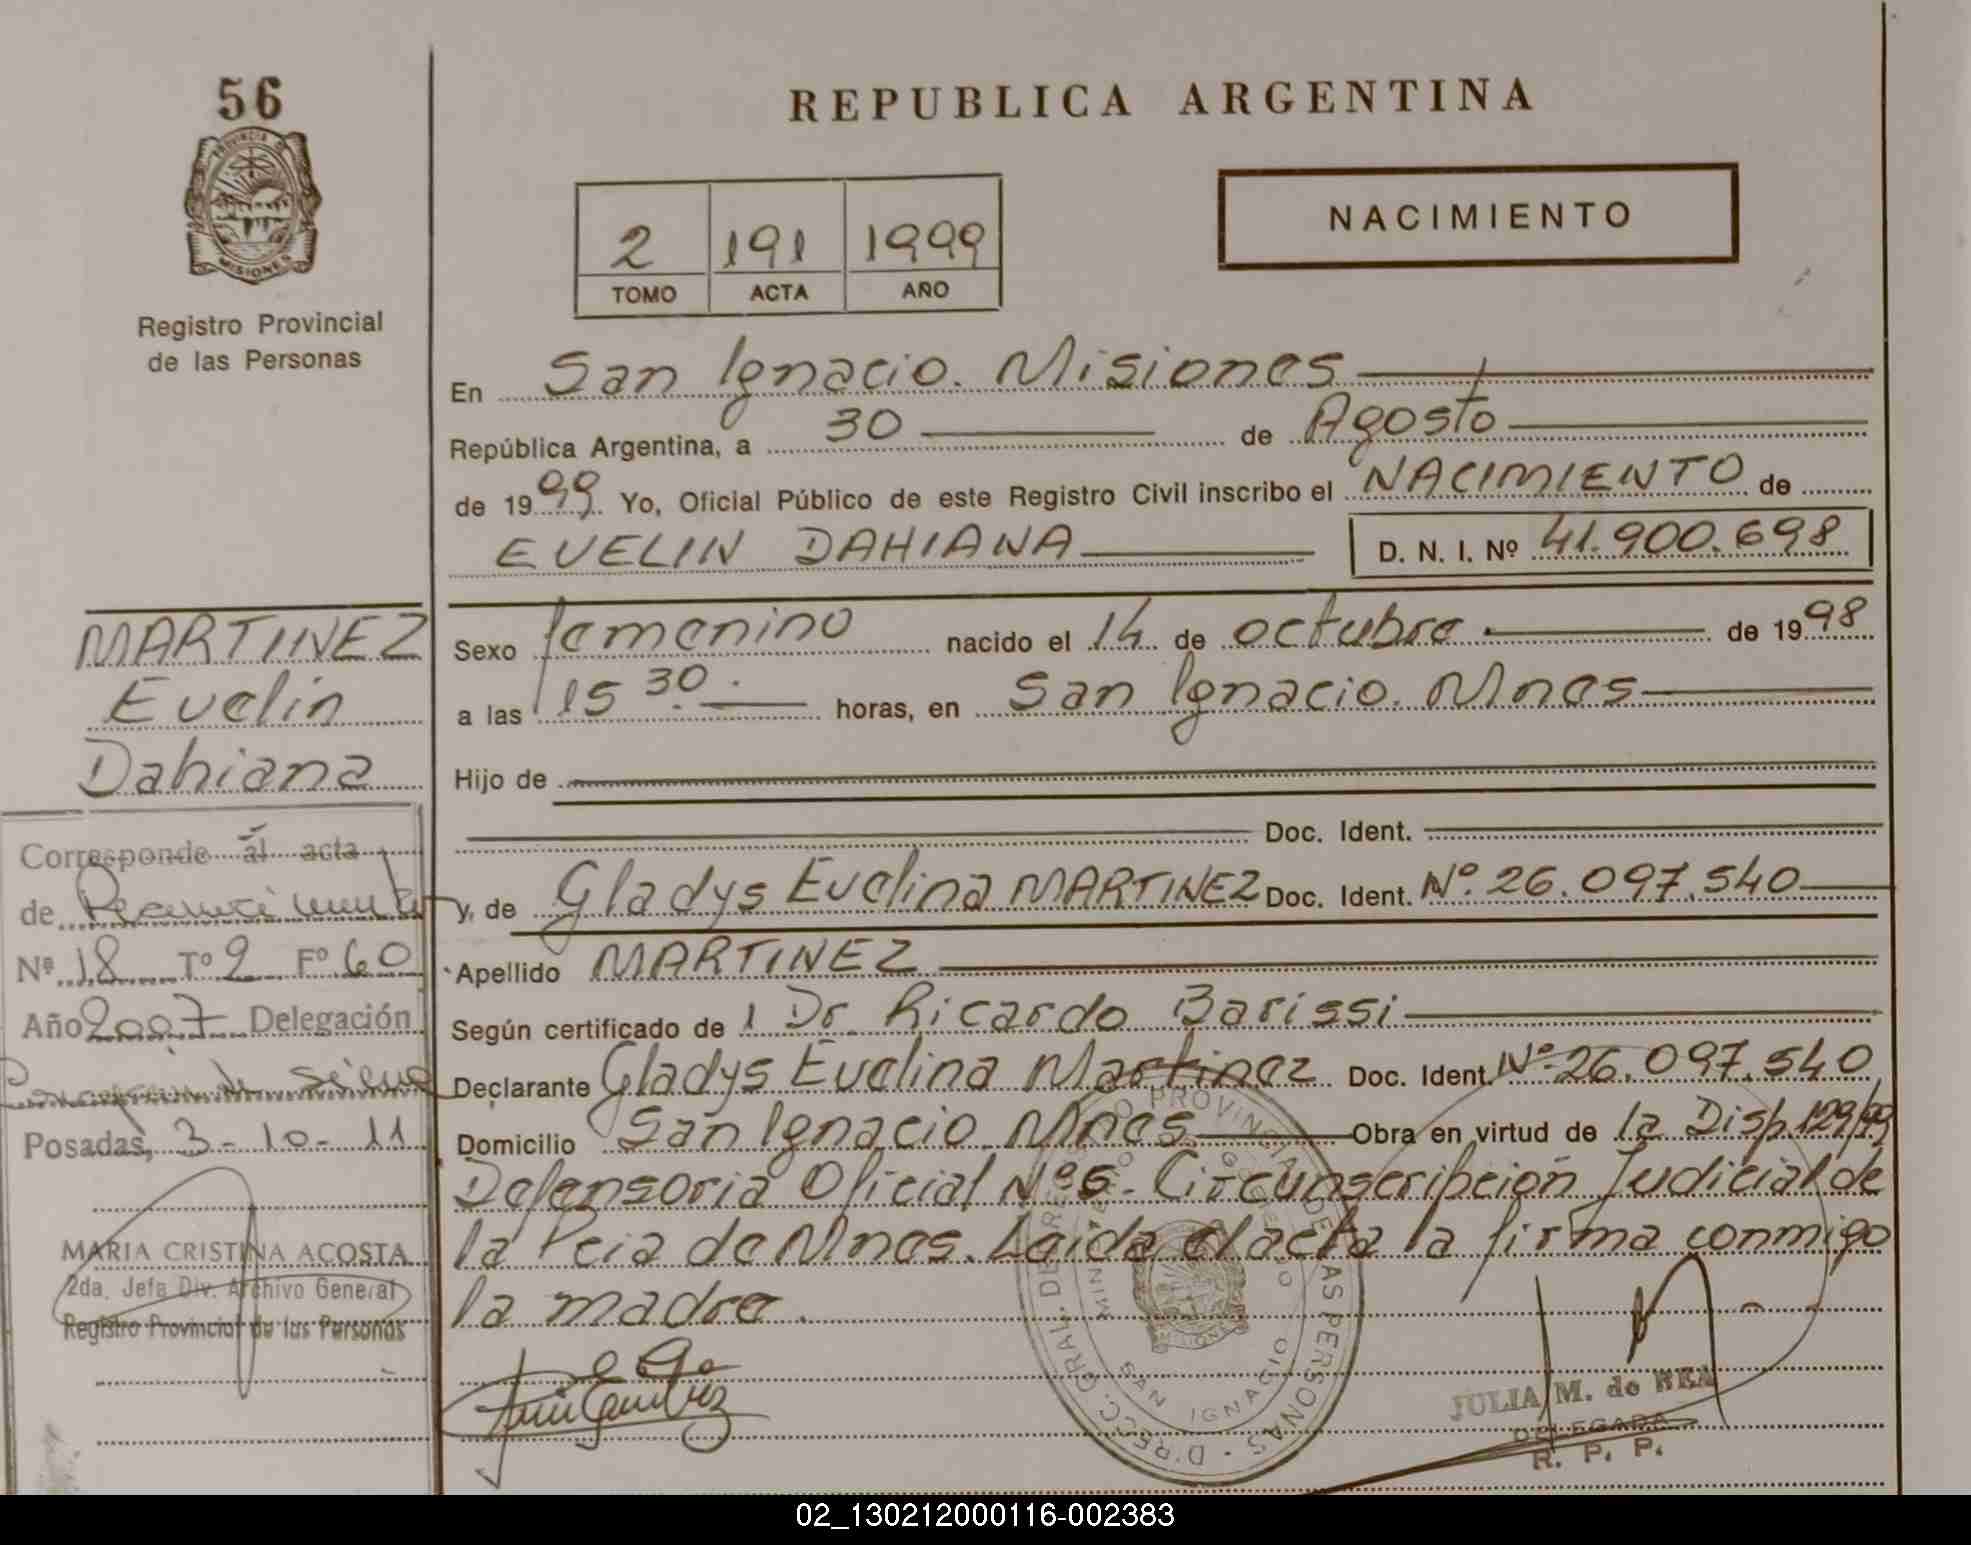 56
PROVINCIA DE
MISIONES
Registro Provincial
de las Personas
REPUBLICA ARGENTINA
NACIMIENTO
2 191 1999
TOMO ACTA AÑO
En San Ignacio. Misiones
República Argentina, a 30 de Agosto
de 1999. Yo, Oficial Público de este Registro Civil inscribo el NACIMIENTO de
EVELIN DAHIANA D. N. I. Nº 41.900.698
MARTINEZ
Evelin
Dahiana
Sexo femenino nacido el 14 de octubre de 1998
a las 15 30. horas, en San Ignacio. Mnes
Hijo de
Doc. Ident.
y, de Gladys Evelina MARTINEZ Doc. Ident. Nº. 26.097.540
Apellido MARTINEZ
Según certificado de 1 Dr. Ricardo Barissi
Declarante Gladys Evelina Martinez Doc. Ident. Nº 26.097.540
Domicilio San Ignacio Mnes Obra en virtud de la Disp. 129/99
Defensoria Oficial Nº 5. Circunscripción Judicial de
la Pcia de Mnes. Leida el acta la firma conmigo
la madre.
Corresponde al acta
de
Nº 18 Tº 2 Fº 60
Año 2007 Delegación
Posadas, 3-10-11
MARIA CRISTINA ACOSTA
2da. Jefa Div. Archivo General
Registro Provincial de las Personas
SAN IGNACIO
JULIA M. de REA
DELEGADA
R. P. P.
02_130212000116-002383